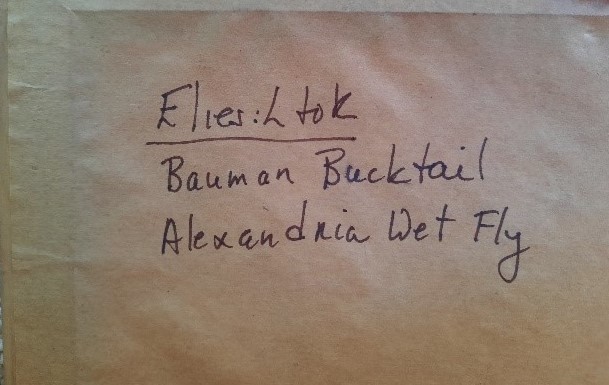 Flies: L to R
Bauman Bucktail
Alexandria Wet Fly